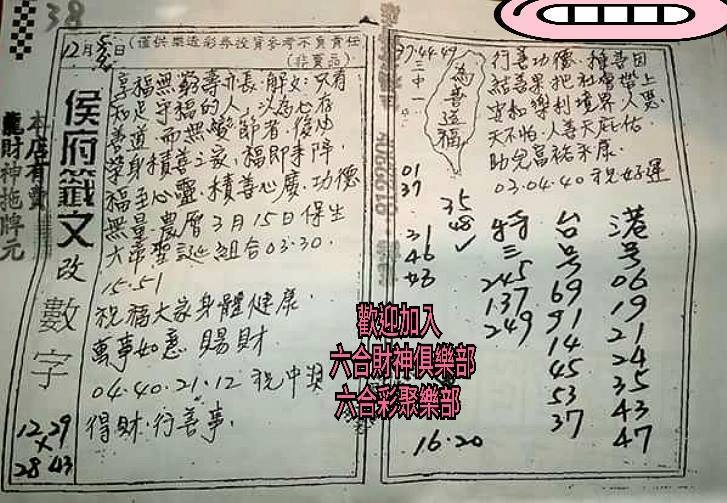 38
12月5日
(僅供樂透彩券投資參考不負責任
(非賣品)
侯府籤文
改
數字
12 29
×
28 43
本店有賣
龍財神拖牌元
享福無窮壽亦長.解文:只有
知足守福的人,以為心存
善道.而無變節者.後
榮身積善之家,福即事降
福至心靈.積善心廣.功德
無量.農曆3月15日保生
大帝聖誕組合03.30.
15.51
祝福大家身體健康.
萬事如意 賜財
04.40.21.12 祝中獎
得財.行善事.
37.44.49
二中一
為善造福
行善功德.種善因
結善果把社會帶上
安和樂利境界人惡
天不怕.人善天庇佑
03.04.40 祝好運
01
37
31
46
43
35
48✓
特三
245
137
249
台号
69
91
14
45
53
37
港号
06
19
21
24
35
43
47
16.20
歡迎加入
六合財神俱樂部
六合彩聚樂部